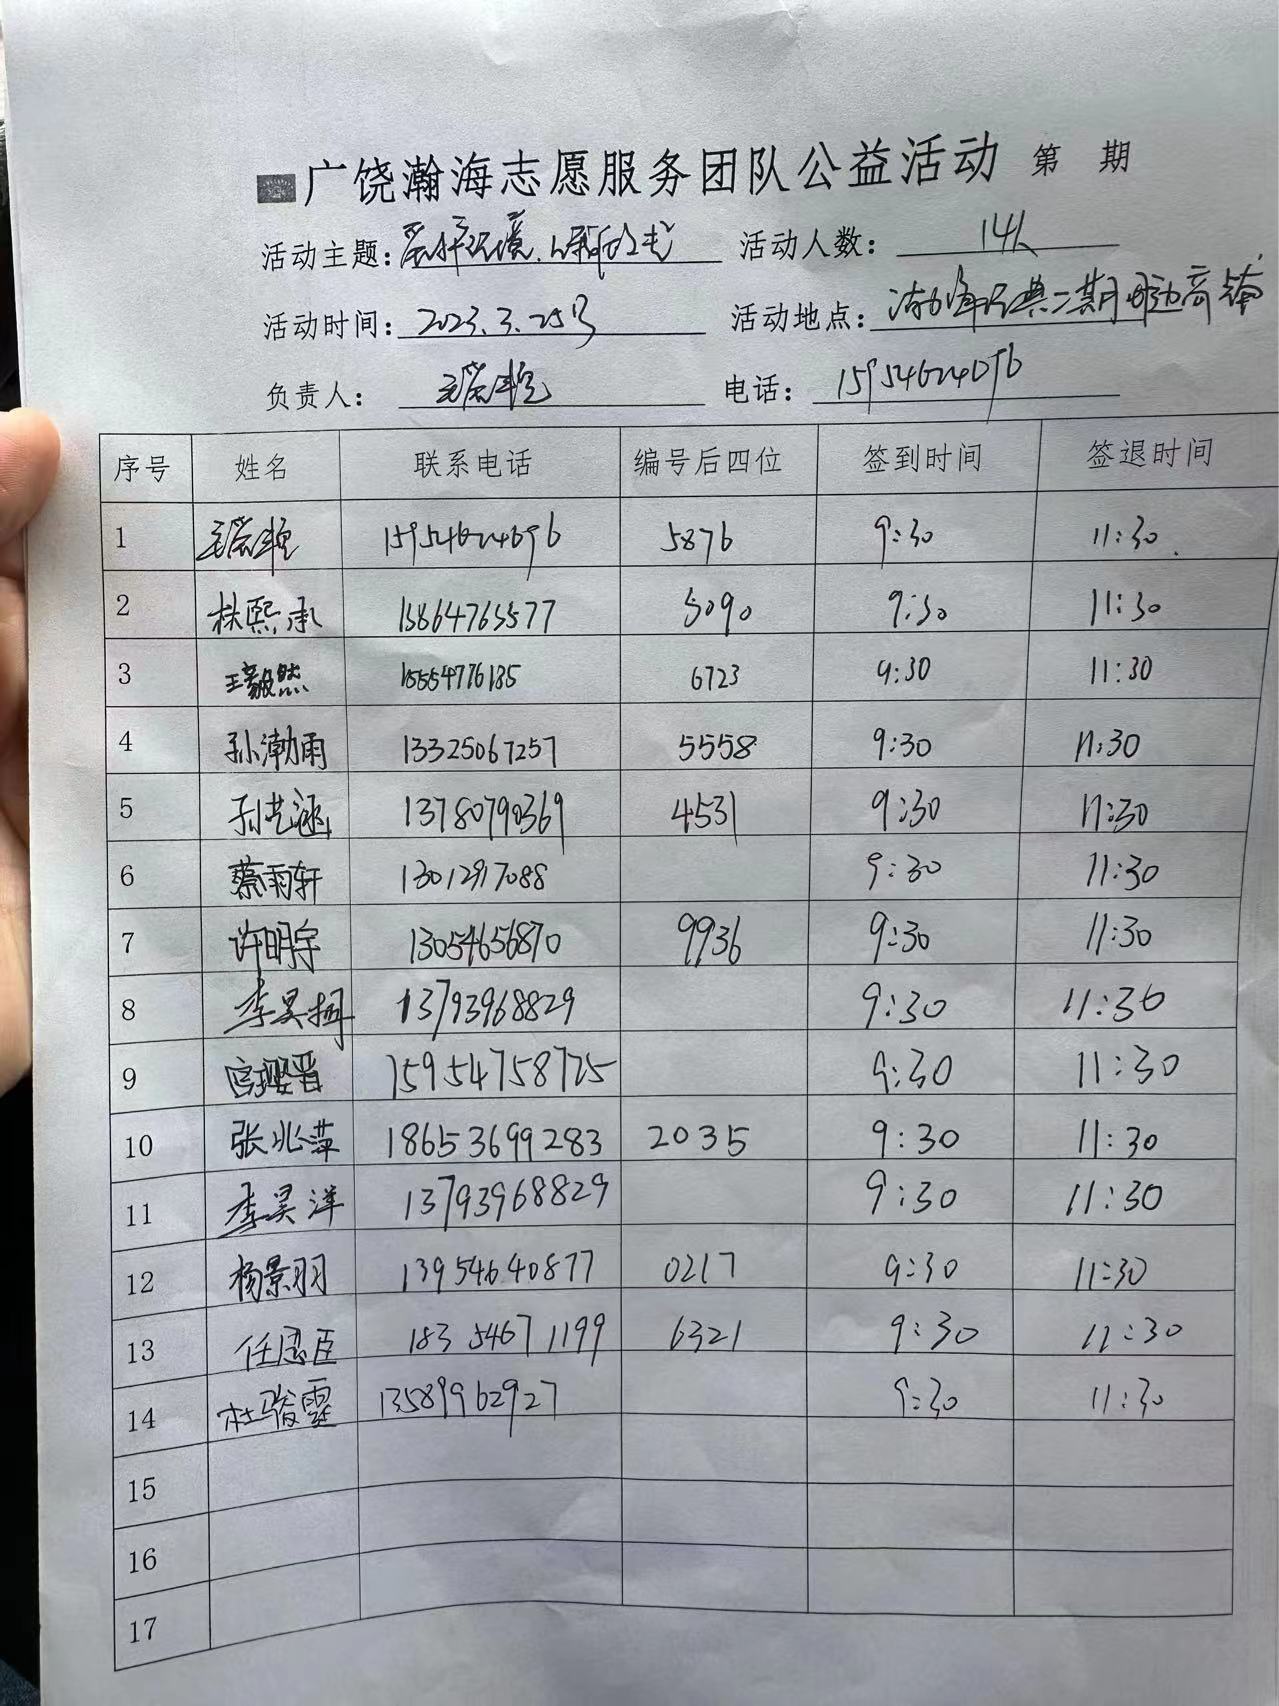 广饶瀚海志愿服务团队公益活动 第 期
活动主题: 活动人数: 14人
活动时间: 2023.3.25日 活动地点:
负责人: 电话: 15954624696
序号 姓名 联系电话 编号后四位 签到时间 签退时间
1 15954624696 5876 9:30 11:30
2 林熙承 15864763577 5090 9:30 11:30
3 王毅然 15554776135 6723 9:30 11:30
4 孙渤雨 13325067257 5558 9:30 11:30
5 孙艺涵 13780790369 4531 9:30 11:30
6 蔡雨轩 13012917088 9:30 11:30
7 许明宇 13054656870 9936 9:30 11:30
8 李昊 13793968829 9:30 11:30
9 15954758725 9:30 11:30
10 张兆萍 18653699283 2035 9:30 11:30
11 李昊洋 13793968829 9:30 11:30
12 杨景羽 13954640877 0217 9:30 11:30
13 18354671199 6321 9:30 11:30
14 杜骏霆 13589962927 9:30 11:30
15
16
17